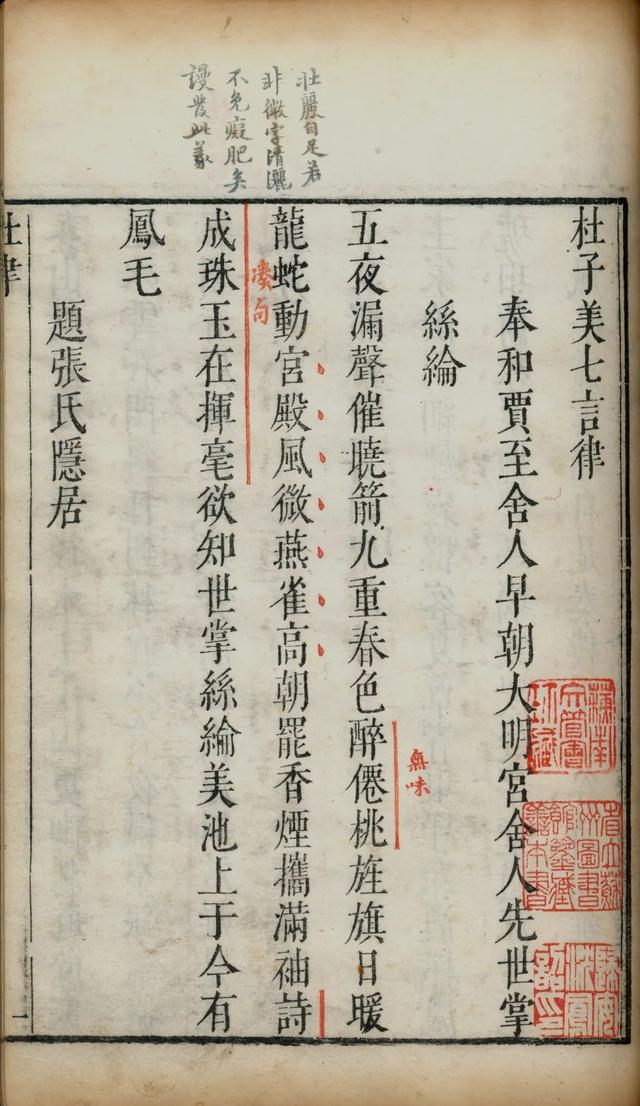 壯麗自足若
非微字清灑
不免癡肥矣
謾發此義
杜子美七言律
奉和賈至舍人早朝大明宮舍人先世掌
絲綸
無味
五夜漏聲催曉箭九重春色醉僊桃旌旗日暖
龍蛇動宮殿風微燕雀高朝罷香煙攜滿袖詩
湊句
成珠玉在揮毫欲知世掌絲綸美池上于今有
鳳毛
題張氏隱居
杜律
一